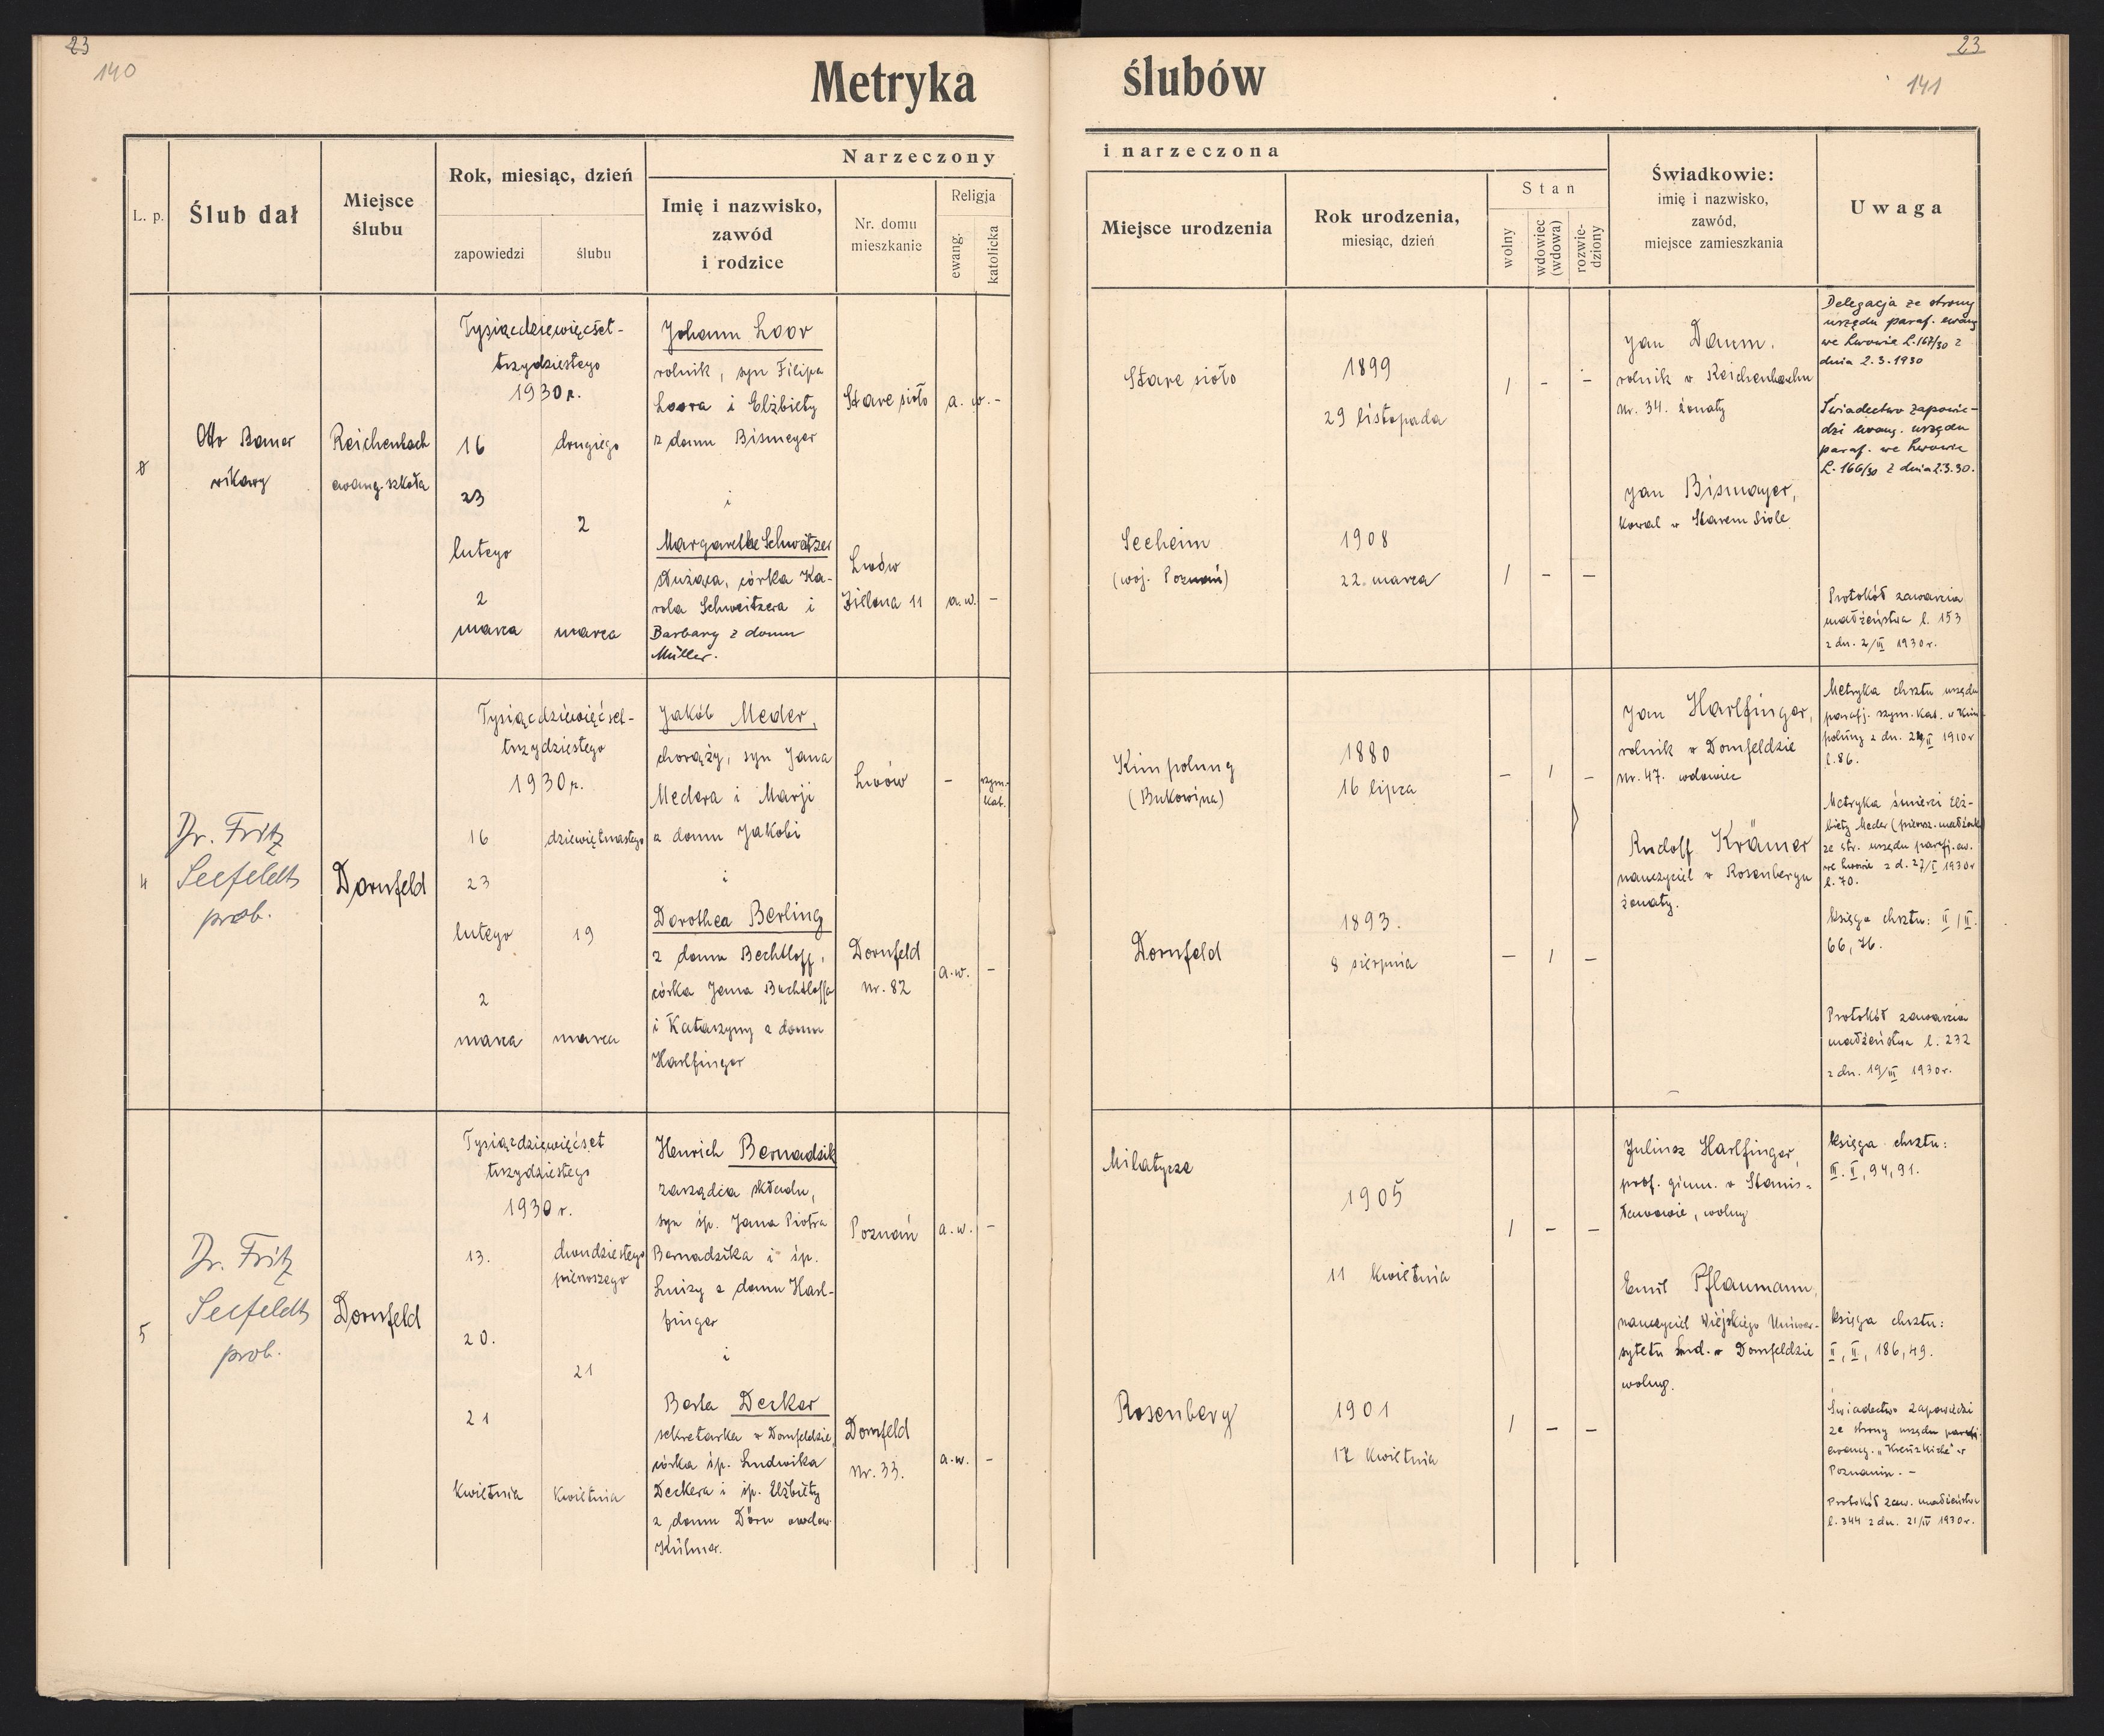 23
140
23
141
Metryka ślubów
L. p.
Ślub dał
Miejsce
ślubu
Rok, miesiąc, dzień
zapowiedzi
ślubu
Narzeczony
Imię i nazwisko,
zawód
i rodzice
Nr. domu
mieszkanie
Religja
ewang.
katolicka
i narzeczona
Miejsce urodzenia
Rok urodzenia,
miesiąc, dzień
Stan
wolny
wdowiec
(wdowa)
rozwie-
dziony
Świadkowie:
imię i nazwisko,
zawód,
miejsce zamieszkania
Uwaga
Otto Bauer
wikary
Reichenbach
ewang. szkoła
Tysiącdziewięćset-
trzydziestego
1930 r.
16
23
lutego
2
marca
drugiego
2
marca
Johann Loor
rolnik, syn Filipa
Loora i Elżbiety
z domu Bismeyer
i
Margarethe Schweitzer
służąca, córka Ka-
rola Schweitzera i
Barbary z domu
Müller.
Stare sioło
a. w. -
Lwów
Zielona 11
a.w. -
Stare sioło
1899
29 listopada
/ - -
Seeheim
(woj. Poznań)
1908
22. marca
/ - -
Jan Daum.
rolnik w Reichenbachu
nr. 34. żonaty
Jan Bismayer,
kowal w Starem Siole
Delegacja ze strony
urzędu paraf. ewang
we Lwowie L.167/30 z
dnia 2.3.1930
Świadectwo zapowie-
dzi ewang. urzędu
paraf. we Lwowie
L. 166/30 z dnia 2.3.30.
Protokół zawarcia
małżeństwa l. 153
z dn. 2/III 1930 r.
4
Dr. Fritz
Seefeldt
prob.
Dornfeld
Tysiącdziewięćset-
trzydziestego
1930 r.
16
23
lutego
2
marca
dziewiętnastego
19
marca
Jakób Meder,
chorąży, syn Jana
Medera i Marji
z domu Jakobi
i
Dorothea Berling
z domu Bechtloff,
córka Jana Bechtloffa
i Katarzyny z domu
Harlfinger
Lwów
-
rzym.
kat.
Dornfeld
nr. 82
a.w. -
Kimpolung
(Bukowina)
1880
16 lipca
- / -
Dornfeld
1893.
8 sierpnia
- / -
Jan Harlfinger,
rolnik w Dornfeldzie
nr. 47. wdowiec
Rudolf Krämer
nauczyciel w Rosenbergu
żonaty.
Metryka chrztu urzędu
parafj. rzym. kat. w Kim-
polung z dn. 24/II 1910 r
l. 86.
Metryka śmierci Elż-
biety Meder (pierwsz. małżonki)
ze str. urzędu parafj. ew.
we Lwowie z d. 27/I 1930 r
l. 70.
Księga chrztu: II / II.
66, 76.
Protokół zawarcia
małżeństwa l. 232
z dn. 19/III 1930 r.
5
Dr. Fritz
Seefeldt
prob.
Dornfeld
Tysiącdziewięćset
trzydziestego
1930 r.
13.
20.
21
kwietnia
dwudziestego
pierwszego
21
kwietnia
Henrich Bernadzik
zarządca składu,
syn śp. Jana Piotra
Bernadzika i śp.
Luizy z domu Harl-
finger
i
Berta Decker
sekretarka w Dornfeldzie,
córka śp. Ludwika
Deckera i śp. Elżbiety
z domu Dörn owdow.
Kühner.
Poznań
a.w. -
Dornfeld
nr. 33.
a.w. -
Milatycze
1905
11 kwietnia
/ - -
Rosenberg
1901
17 kwietnia
/ - -
Juliusz Harlfinger,
prof. gimn. w Stanis-
ławowie, wolny
Emil Pflaumann,
nauczyciel Wiejskiego Uniwer-
sytetu Lud. w Dornfeldzie
wolny.
księga chrztu:
III. II, 94, 91.
księga chrztu:
II, II, 186, 49.
Świadectwo zapowiedzi
ze strony urzędu parafj.
ewang. "Kreuzkirche" w
Poznaniu. -
Protokół zaw. małżeństwa
l. 344 z dn. 21/IV 1930 r.